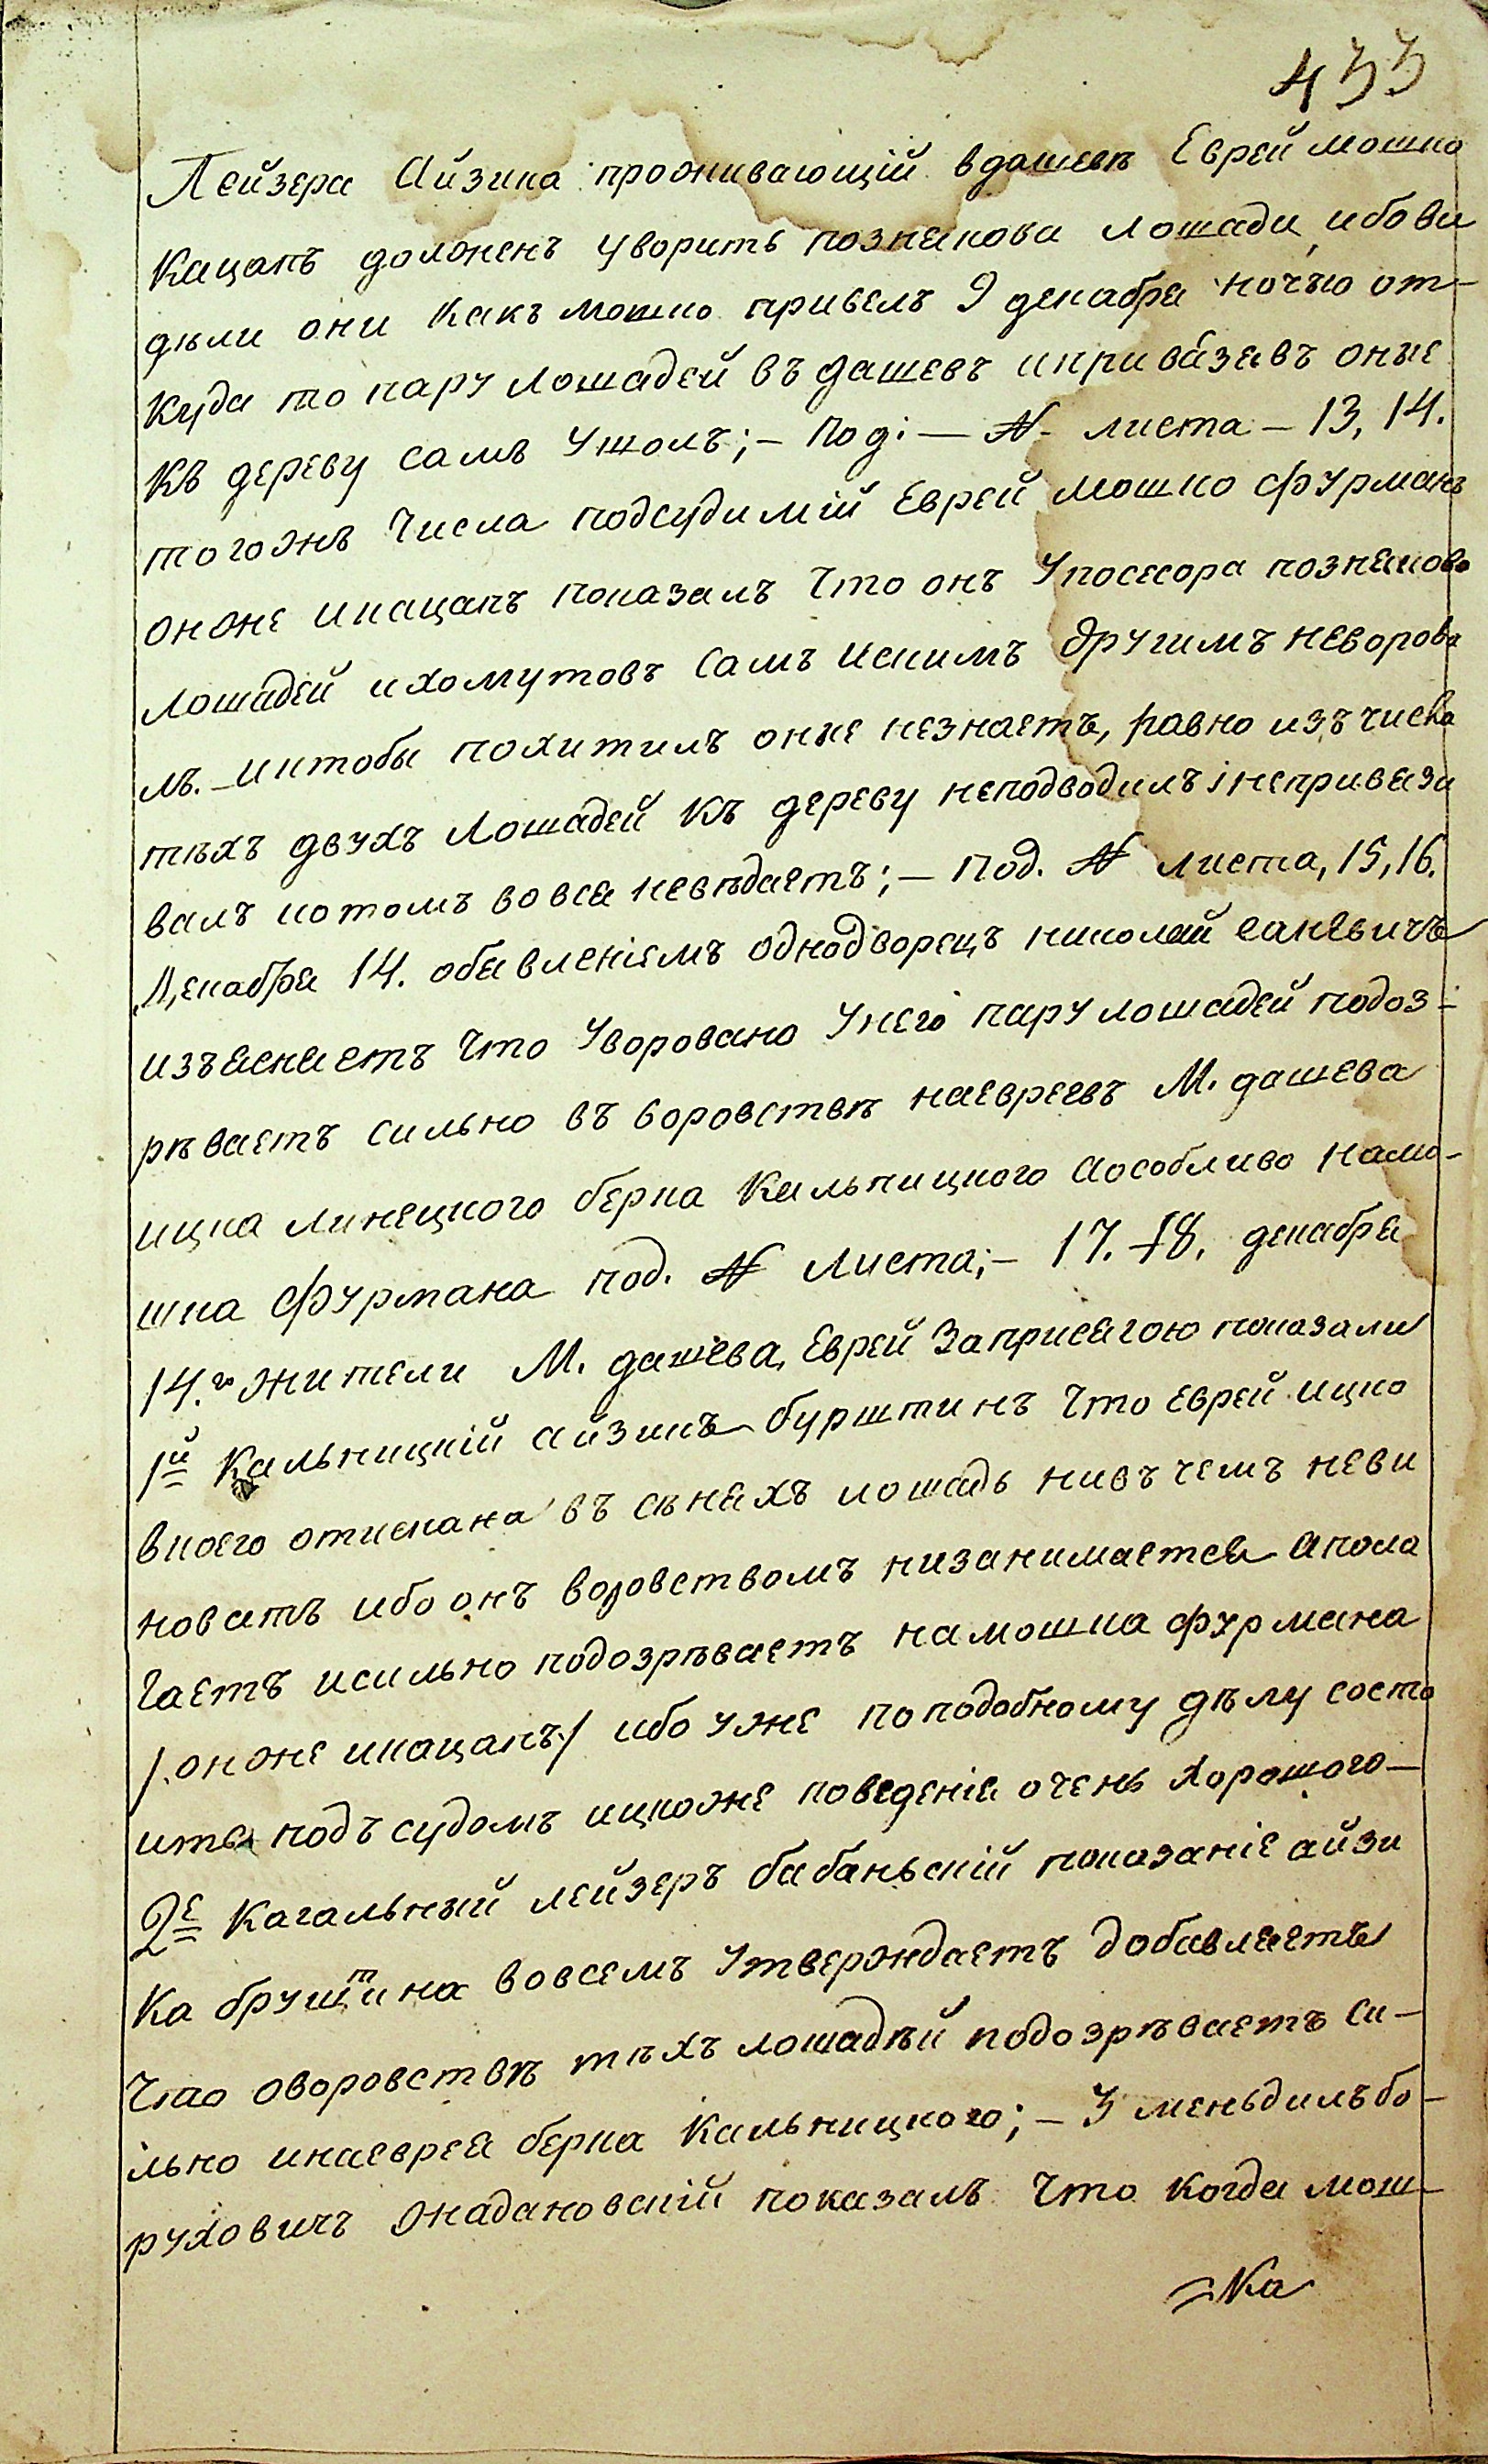 433
Лейзера Айзика проживающій вдашевѣ Еврей мошко
Кацапъ долженъ уворить познякова лошади ибови
дѣли они какъ мошко привелъ 9 декабря ночью от-
куда то пару лошадей въ дашевъ ипривязавъ оные
къ дереву самъ ушолъ;- под: — № листа - 13, 14.
тогожъ числа подсудимій Еврей мошко фурманъ
онже икацапъ показалъ что онъ упосесора позняково
лошадей ихомутовъ самъ искимъ другимъ неворова
лъ. - иктобы похитилъ оные незнаетъ, равно изъ числа
тѣхъ двухъ лошадей къ дереву неподводилъ інепривязи
валъ иотомъ вовся невѣдаетъ;- Под. № листа, 15, 16.
Декабря 14. обявленіемъ однодворецъ николай саневичъ
изъясняетъ что уворовано унего пару лошадей подоз-
рѣваетъ сильно въ воровствѣ наевреевъ М. дашева
ицка линецкого берка Кальницкого аособливо намо-
шка фурмана под. № листа;- 17. 18. декабря
14.го жители М. дашева, Еврей Заприсягою показали
1й Кальницкій айзикъ бурштинъ что еврей ицко
вкоего отискана въ сѣняхъ лошадь нивъ чемъ неви
новатъ ибо онъ воровствомъ низанимается апола
гаетъ исильно подозрѣваетъ намошка фурмана
/. онже икацапъ ./ ибо уже поподобному дѣлу состо
итъ подъ судомъ ицкоже поведенія очень хорошого-
2е Кагальный лейзеръ бабаньскій показаніе айзи
ка бруштина вовсемъ утверждаетъ добавляетъ
что оворовствѣ тѣхъ лошадѣй подозрѣваетъ си-
льно инаеврея берка Кальницкого;- 3 меньдилъ бо-
руховичъ жадановскій показалъ что когда мош-
ка